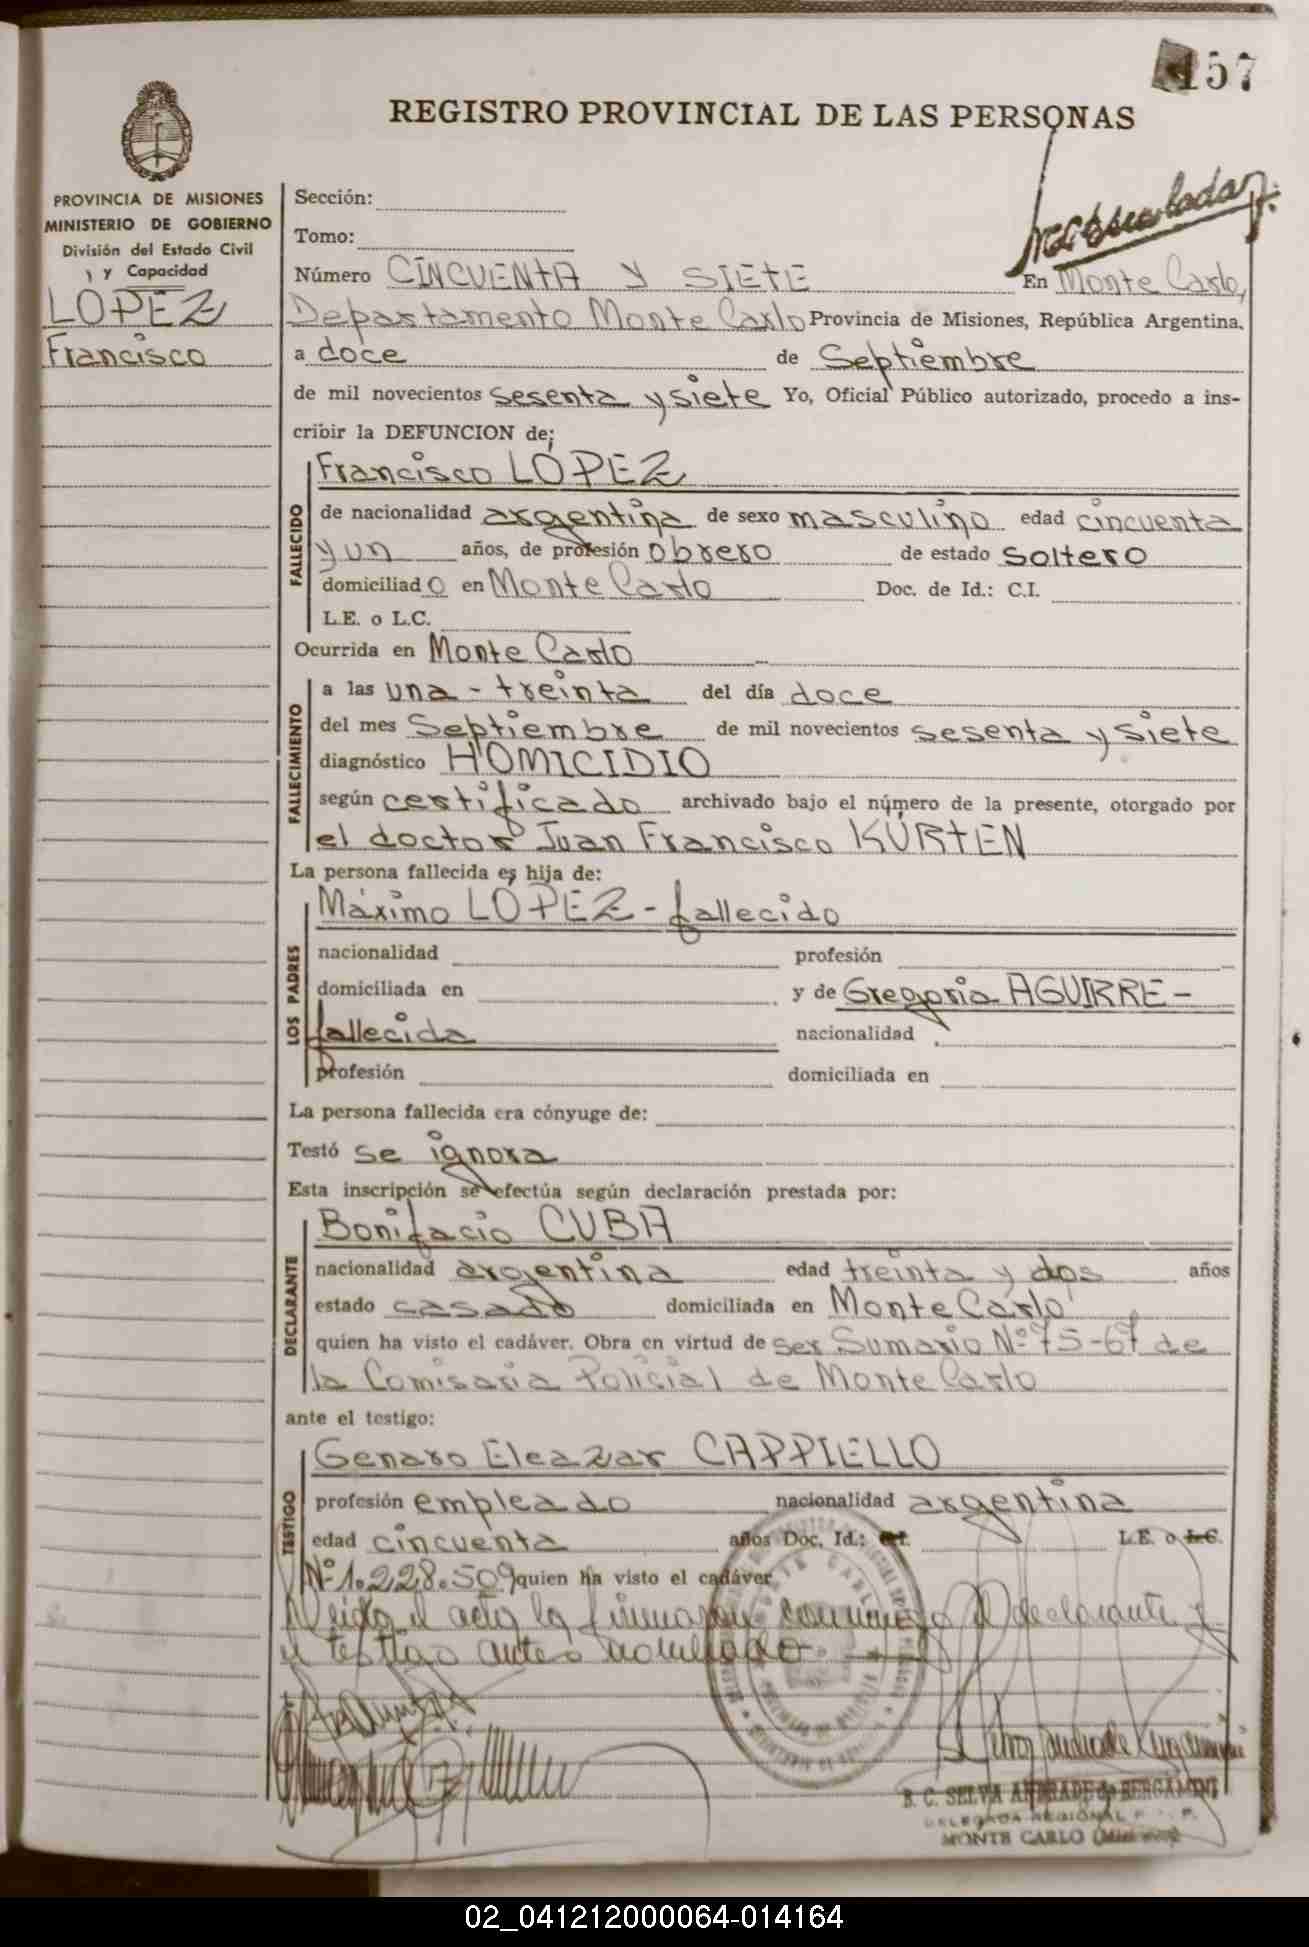 157
REGISTRO PROVINCIAL DE LAS PERSONAS
PROVINCIA DE MISIONES
MINISTERIO DE GOBIERNO
División del Estado Civil
y Capacidad
LOPEZ
Francisco
Sección:
Tomo:
Número CINCUENTA Y SIETE En Monte Carlo,
Departamento Monte Carlo Provincia de Misiones, República Argentina,
a doce de Septiembre
de mil novecientos sesenta y siete Yo, Oficial Público autorizado, procedo a ins-
cribir la DEFUNCION de;
FALLECIDO
Francisco LOPEZ
de nacionalidad argentina de sexo masculino edad cincuenta
y un años, de profesión obrero de estado soltero
domiciliado en Monte Carlo Doc. de Id.: C.I.
L.E. o L.C.
Ocurrida en Monte Carlo
FALLECIMIENTO
a las una - treinta del día doce
del mes Septiembre de mil novecientos sesenta y siete
diagnóstico HOMICIDIO
según certificado archivado bajo el número de la presente, otorgado por
el doctor Juan Francisco KÜRTEN
La persona fallecida es hija de:
LOS PADRES
Máximo LOPEZ - fallecido
nacionalidad profesión
domiciliada en y de Gregoria AGUIRRE -
fallecida nacionalidad
profesión domiciliada en
La persona fallecida era cónyuge de:
Testó se ignora
Esta inscripción se efectúa según declaración prestada por:
DECLARANTE
Bonifacio CUBA
nacionalidad argentina edad treinta y dos años
estado casado domiciliada en Monte Carlo
quien ha visto el cadáver. Obra en virtud de ser Sumario Nº 75-67 de
la Comisaria Policial de Monte Carlo
ante el testigo:
TESTIGO
Genaro Eleazar CAPPIELLO
profesión empleado nacionalidad argentina
edad cincuenta años Doc. Id.: C.I. L.E. o L.C.
Nº 1.228.509 quien ha visto el cadáver
Leida el acta la firmaron conmigo el declarante y
el testigo antes nombrado
B. C. SELVA ANDRADE de BERGAMINI
DELEGADA REGIONAL R. P. P.
MONTE CARLO (Misiones)
02_041212000064-014164